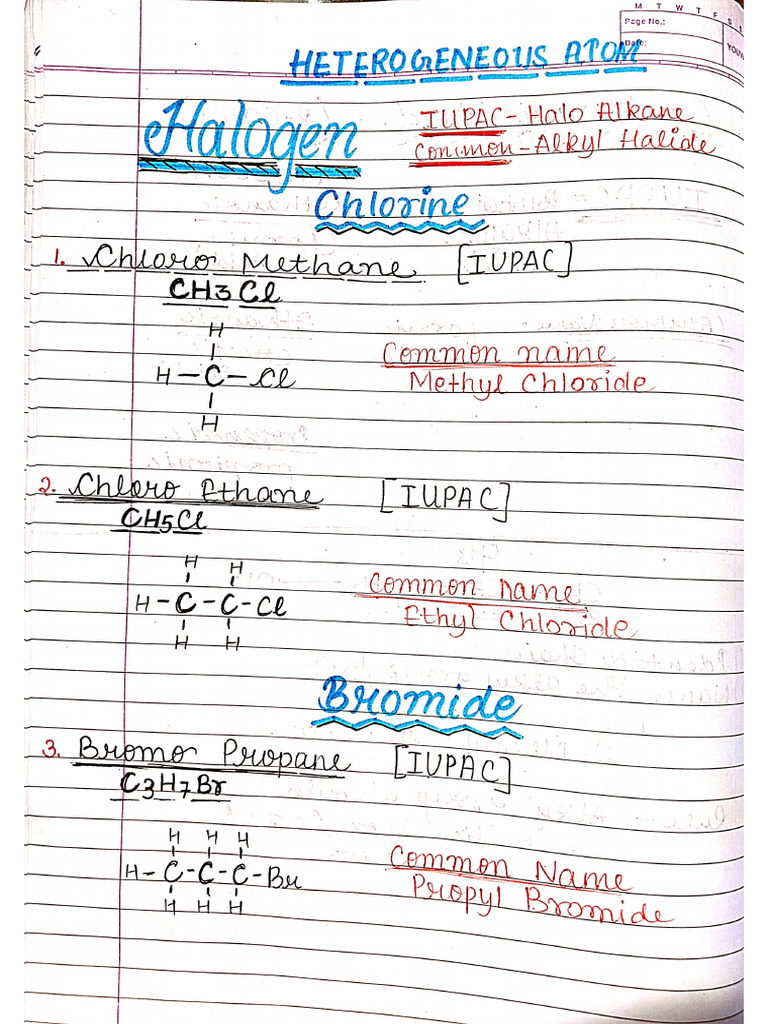 M T W T F S
Page No.:
Date:
YOUVA
HETEROGENEOUS ATOM
Halogen
IUPAC - Halo Alkane
Common - Alkyl Halide
Chlorine
1. Chloro Methane [IUPAC]
CH3 Cl
H
H - C - Cl
H
Common name
Methyl Chloride
2. Chloro Ethane [IUPAC]
CH5Cl
H H
H - C - C - Cl
H H
Common Name
Ethyl Chloride
Bromide
3. Bromo Propane [IUPAC]
C3H7Br
H H H
H - C - C - C - Br
H H H
Common Name
Propyl Bromide